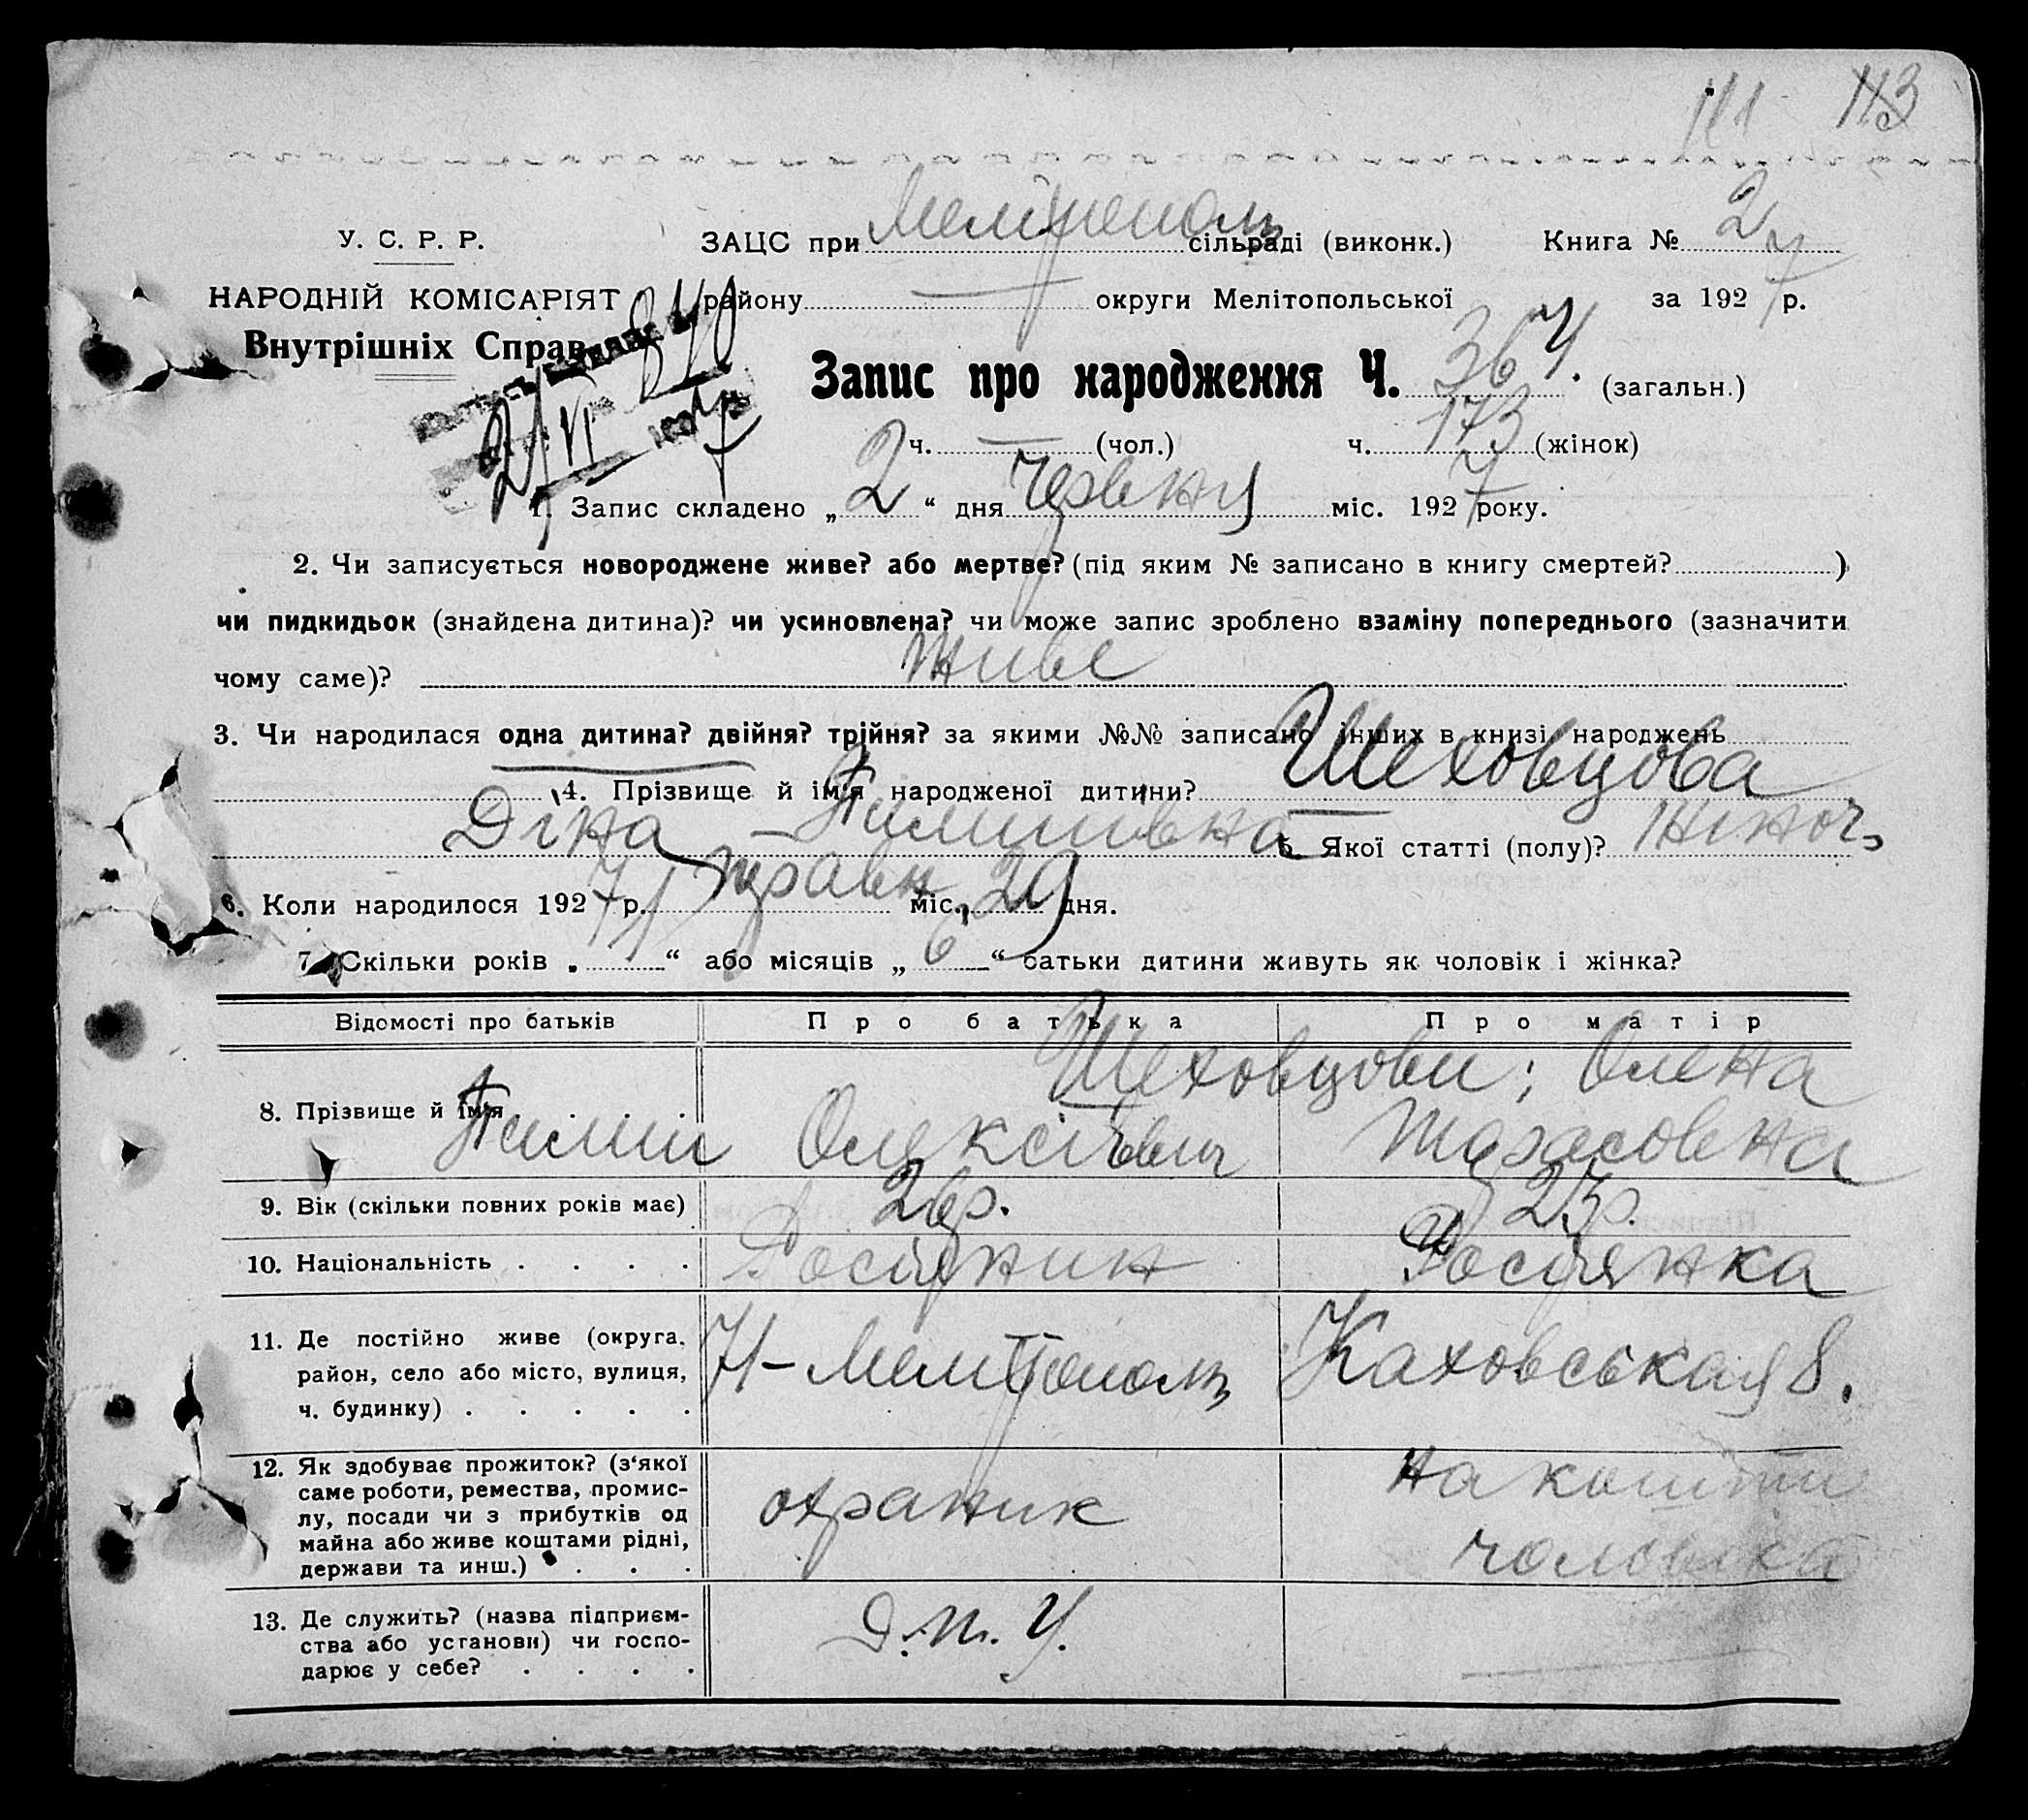 111 113
У. С. Р. Р.
НАРОДНІЙ КОМІСАРІЯТ
Внутрішніх Справ
ЗАЦС при Мелітополь сільраді (виконк.) Книга № 2
району — округи Мелітопольської за 1927 р.
Запис про народження Ч. 364. (загальн.)
2 ч. — (чол.) ч. 173 (жінок)
1. Запис складено „2“ дня Червня міс. 1927 року.
2. Чи записується новороджене живе? або мертве? (під яким № записано в книгу смертей? )
чи пидкидьок (знайдена дитина)? чи усиновлена? чи може запис зроблено взаміну попереднього (зазначити
чому саме)? живе
3. Чи народилася одна дитина? двійня? трійня? за якими №№ записано інших в книзі народжень
4. Прізвище й ім'я народженої дитини? Шеховцова
Діна Пилипівна 5. Якої статті (полу)? жіноч.
6. Коли народилося 1927 р. травн міс. 29 дня.
7. Скільки років „ “ або місяців „6“ батьки дитини живуть як чоловік і жінка?
Відомості про батьків Про батька Про матір
8. Прізвище й ім'я Шеховцови; Олена
Пилип Олексієвич Тарасовна
9. Вік (скільки повних років має) 26р. 23р.
10. Національність . . . . Росіянин Росіянка
11. Де постійно живе (округа,
район, село або місто, вулиця,
ч. будинку) . . . . .
Мелітополь Каховськая 8.
12. Як здобуває прожиток? (з'якої
саме роботи, ремества, промис-
лу, посади чи з прибутків од
майна або живе коштами рідні,
держави та инш.) . . .
охраник на кошти
чоловіка
13. Де служить? (назва підприєм-
ства або установи) чи госпо-
дарює у себе? . . . .
Д.П.У.